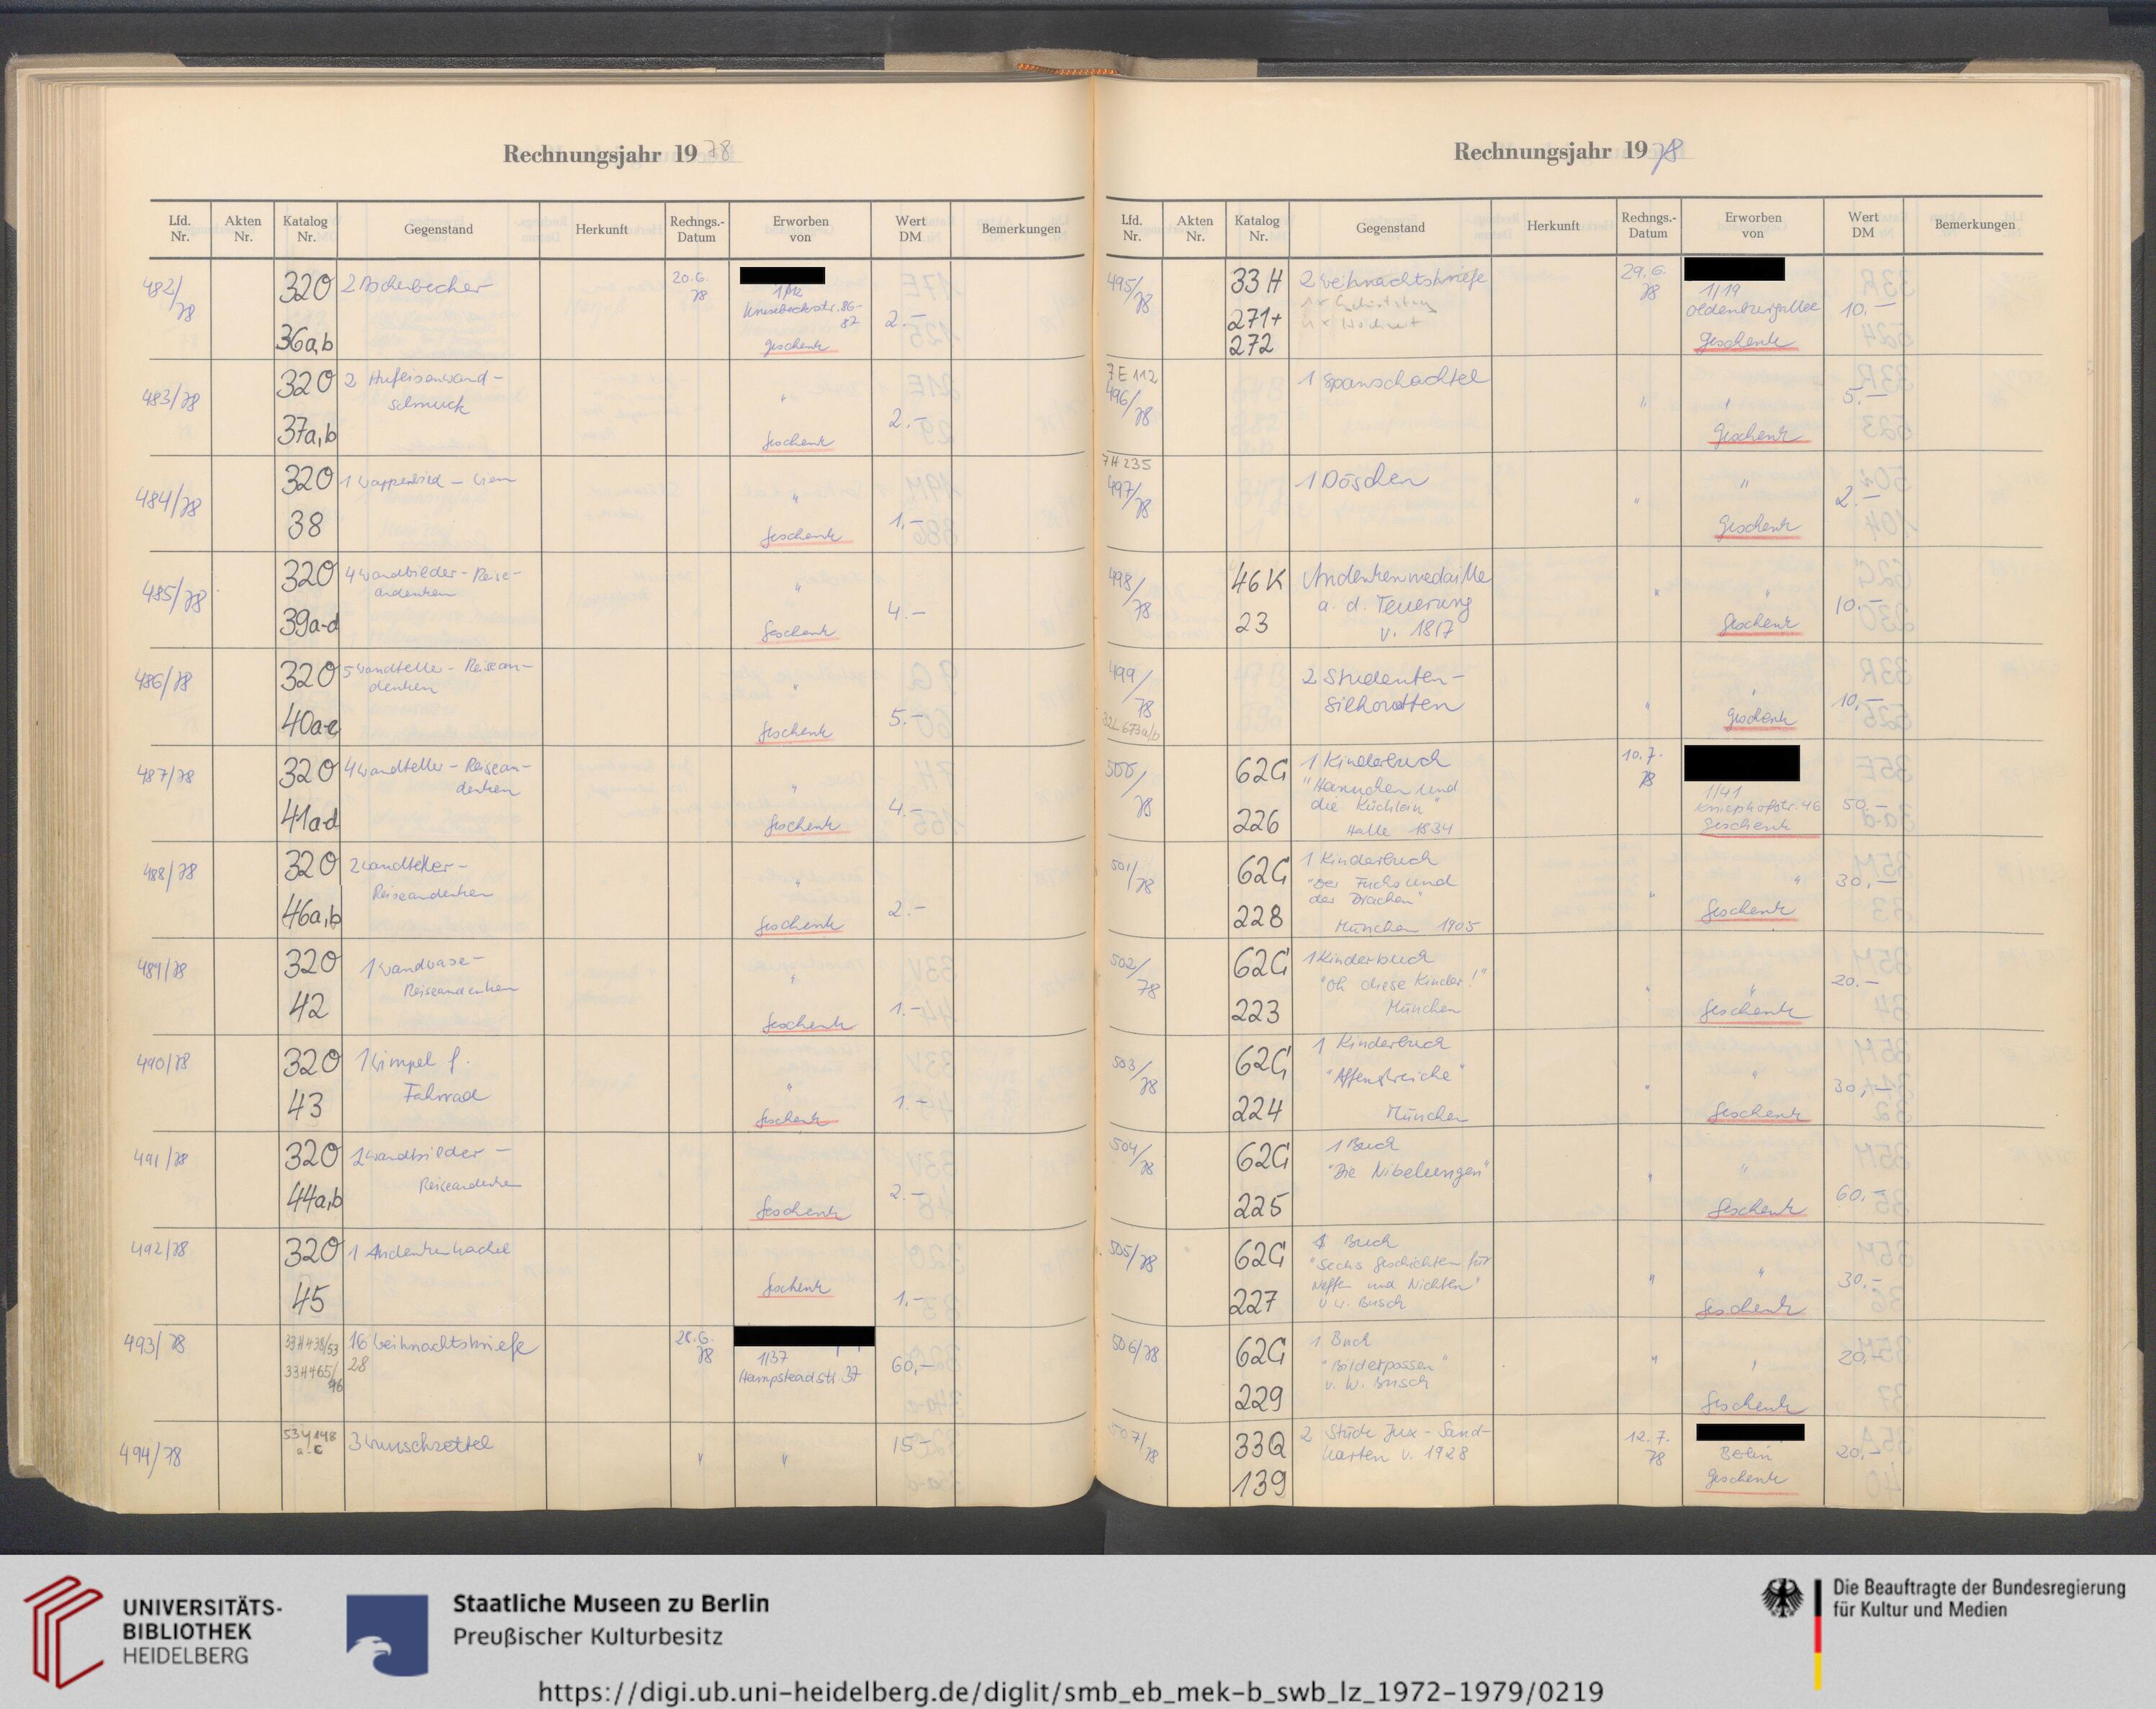 Rechnungsjahr 19 78
Lfd. Nr.
Akten Nr.
Katalog Nr.
Gegenstand
Herkunft
Rechngs.-Datum
Erworben von
Wert DM
Bemerkungen
482/78
320
36a,b
2 Aschenbecher
20.6.
78
1/12
Knesebeckstr. 86-
87
Geschenk
2.-
483/78
320
37a,b
2 Hufeisenwand-
schmuck
"
Geschenk
2.-
484/78
320
38
1 Wappenbild - Wien
"
Geschenk
1.-
485/78
320
39a-d
4 Wandbilder - Reise-
andenken
"
Geschenk
4.-
486/78
320
40a-e
5 Wandteller - Reisean-
denken
"
Geschenk
5.-
487/78
320
41a-d
4 Wandteller - Reisean-
denken
"
Geschenk
4.-
488/78
320
46a,b
2 Wandteller -
Reiseandenken
"
Geschenk
2.-
489/78
320
42
1 Wandvase -
Reiseandenken
"
Geschenk
1.-
490/78
320
43
1 Wimpel f.
Fahrrad
"
Geschenk
1.-
491/78
320
44a,b
2 Wandbilder -
Reiseandenken
Geschenk
2.-
492/78
320
45
1 Andenkenkachel
Geschenk
1.-
493/78
33H438/53
33H465/
96
16 Weihnachtsbriefe
28
28.6.
78
1/37
Hampsteadstr. 37
60,-
494/78
53Y148
a-c
3 Wunschzettel
"
"
15-
Rechnungsjahr 19 78
Lfd. Nr.
Akten Nr.
Katalog Nr.
Gegenstand
Herkunft
Rechngs.-Datum
Erworben von
Wert DM
Bemerkungen
495/78
33 H
271+
272
2 Weihnachtsbriefe
1x Geburtstag
1x Hochzeit
29.6.
78
1/19
Oldenburgallee
Geschenk
10.-
7E112
496/78
1 Spanschachtel
"
"
Geschenk
5.-
7H235
497/78
1 Döschen
"
"
Geschenk
2.-
498/78
46K
23
Andenkenmedaille
a. d. Teuerung
v. 1817
"
"
Geschenk
10.-
499/78
32L673a/b
2 Studenten-
Silhouetten
"
"
Geschenk
10,-
500/78
62G
226
1 Kinderbuch
"Hannchen und
die Küchlein"
Halle 1834
10.7.
78
1/41
Kniephofstr. 46
Geschenk
50.-
501/78
62G
228
1 Kinderbuch
"Der Fuchs und
der Drachen"
München 1905
"
"
Geschenk
30,-
502/78
62G
223
1 Kinderbuch
"Oh diese Kinder!"
München
"
"
Geschenk
20.-
503/78
62G
224
1 Kinderbuch
"Affenstreiche"
München
"
"
Geschenk
30,-
504/78
62G
225
1 Buch
"Die Nibelungen"
"
"
Geschenk
60,-
505/78
62G
227
1 Buch
"Sechs Geschichten für
Neffen und Nichten"
v. W. Busch
"
"
Geschenk
30.-
506/78
62G
229
1 Buch
"Bilderpossen"
v. W. Busch
"
"
Geschenk
20,-
507/78
33Q
139
2 Stück Jux-Sand-
karten v. 1928
12.7.
78
Berlin
Geschenk
20,-
UNIVERSITÄTS-
BIBLIOTHEK
HEIDELBERG
Staatliche Museen zu Berlin
Preußischer Kulturbesitz
Die Beauftragte der Bundesregierung
für Kultur und Medien
https://digi.ub.uni-heidelberg.de/diglit/smb_eb_mek-b_swb_lz_1972-1979/0219